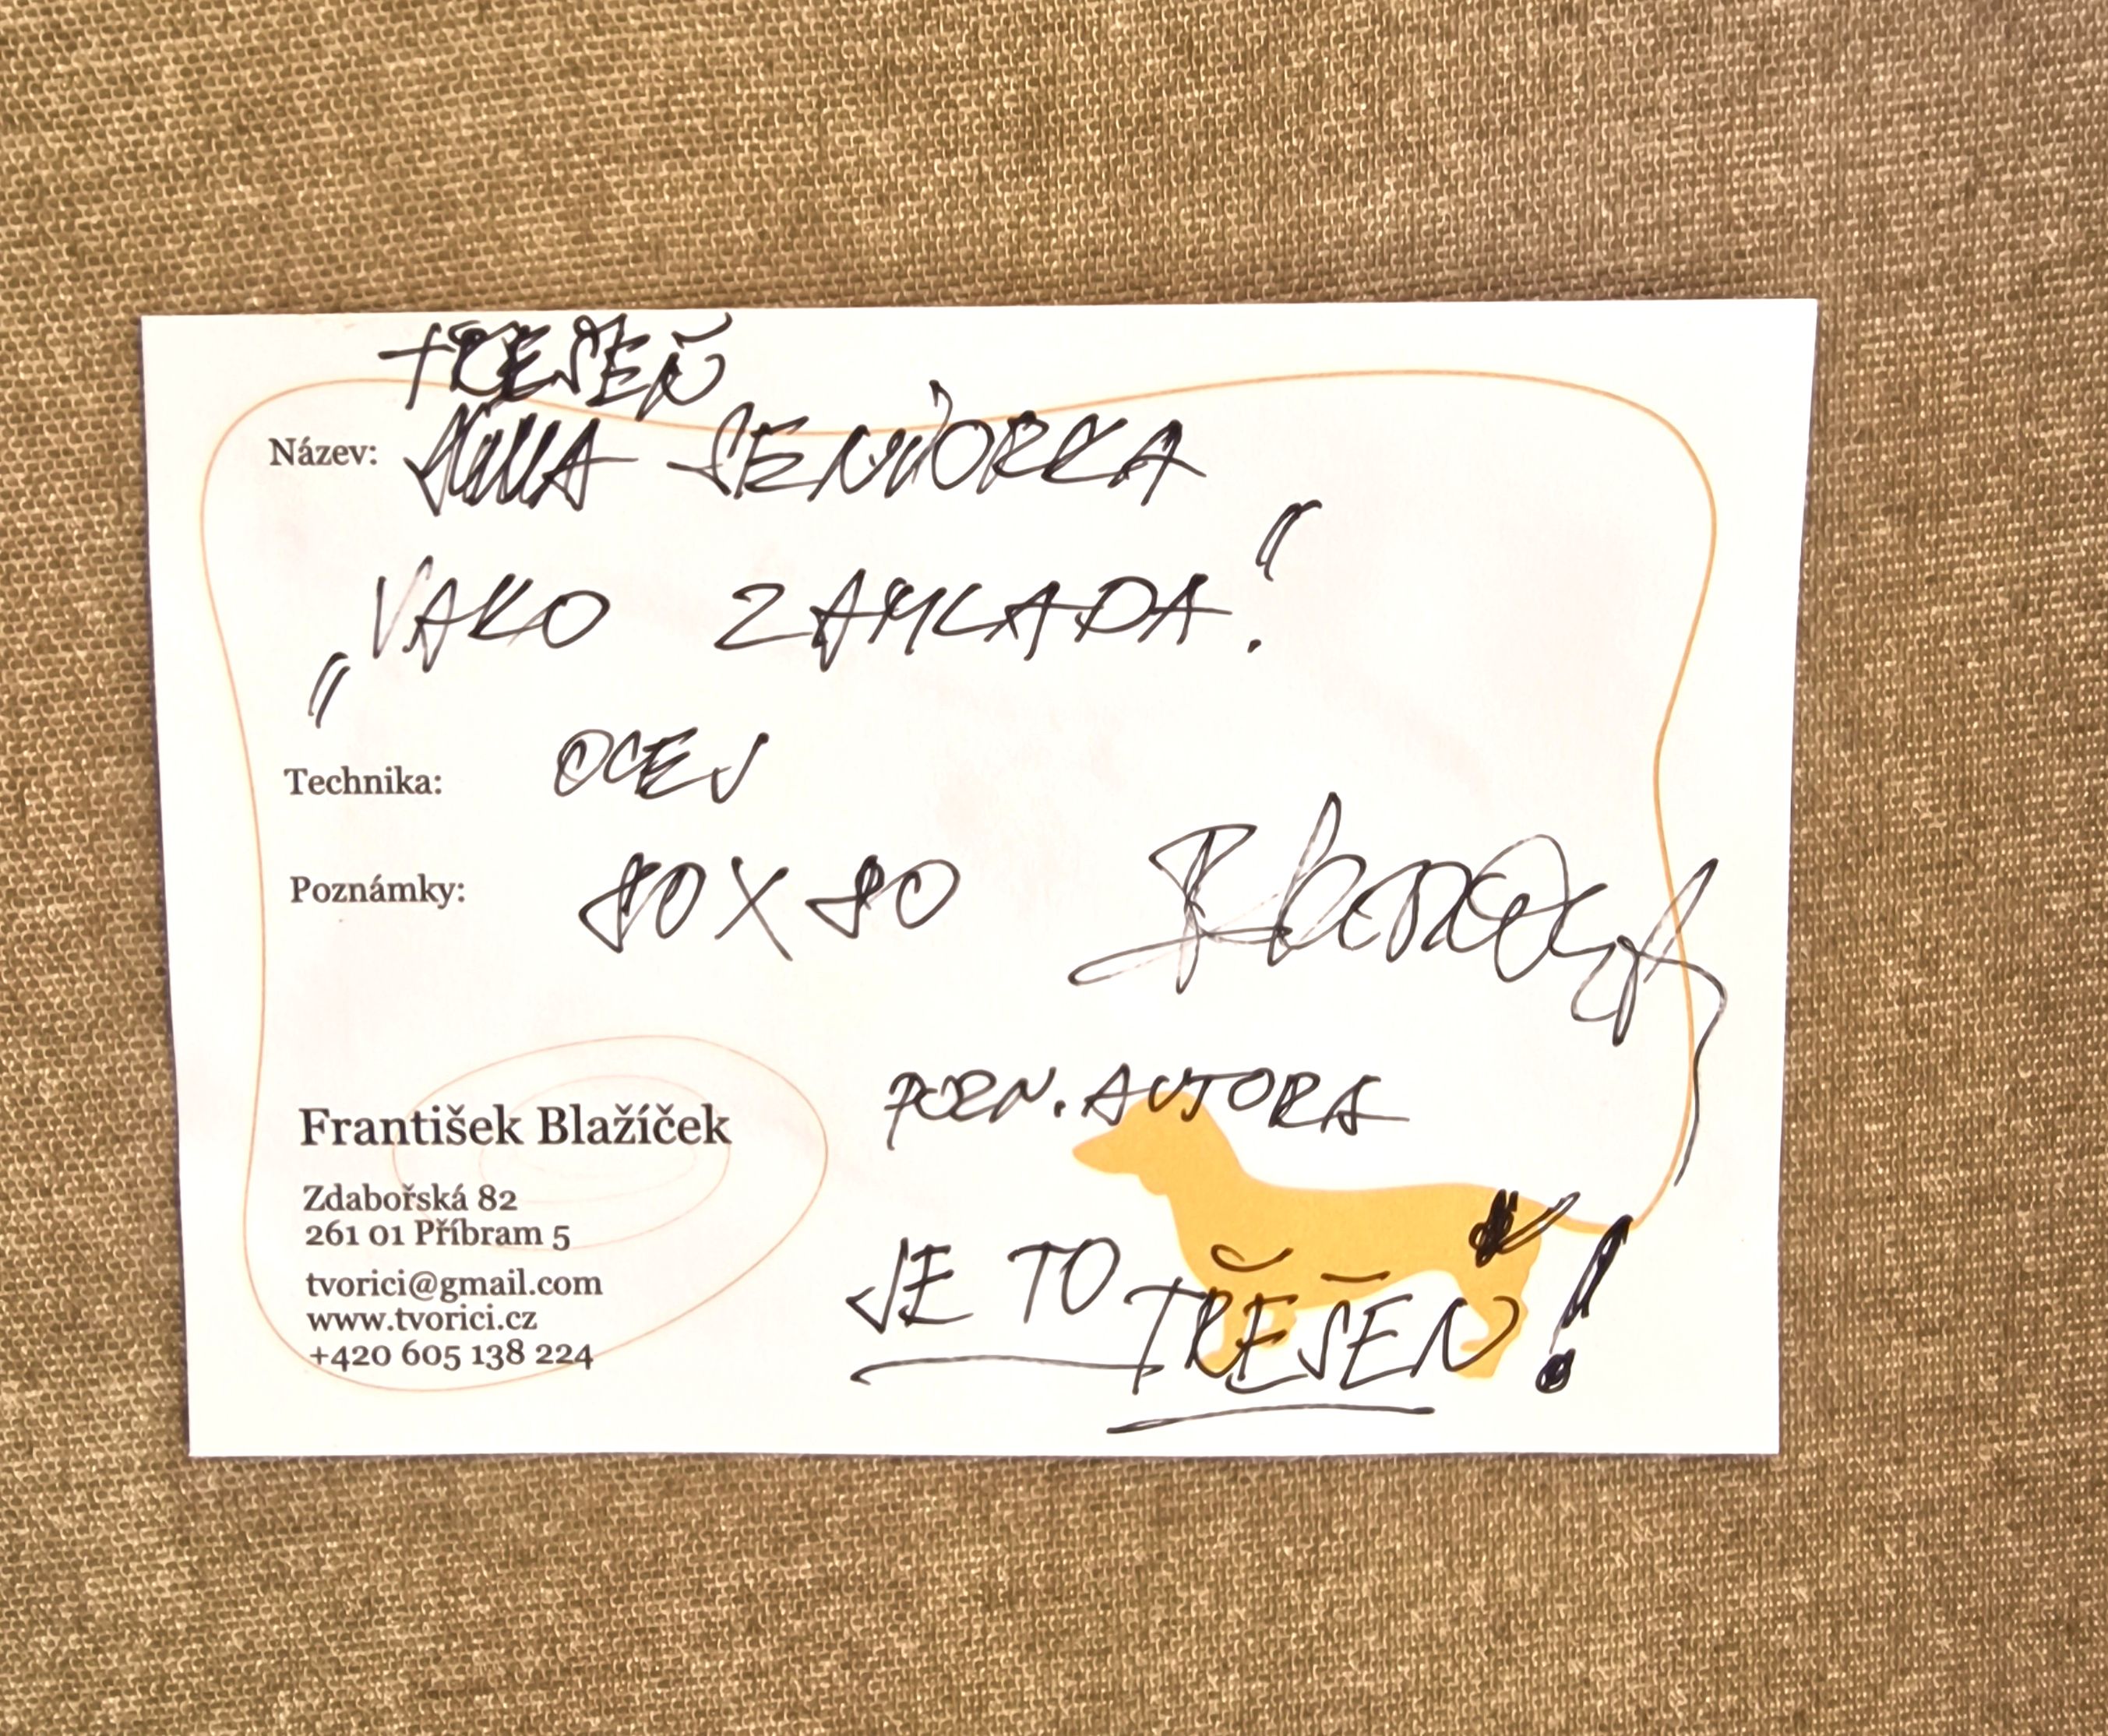 TŘEŠEŇ
Název: SENIORKA
„JAKO ZAMLADA."
Technika: OLEJ
Poznámky: 80 X 80
POZN. AUTORA
JE TO TŘEŠEŇ!
František Blažíček
Zdabořská 82
261 01 Příbram 5
tvorici@gmail.com
www.tvorici.cz
+420 605 138 224